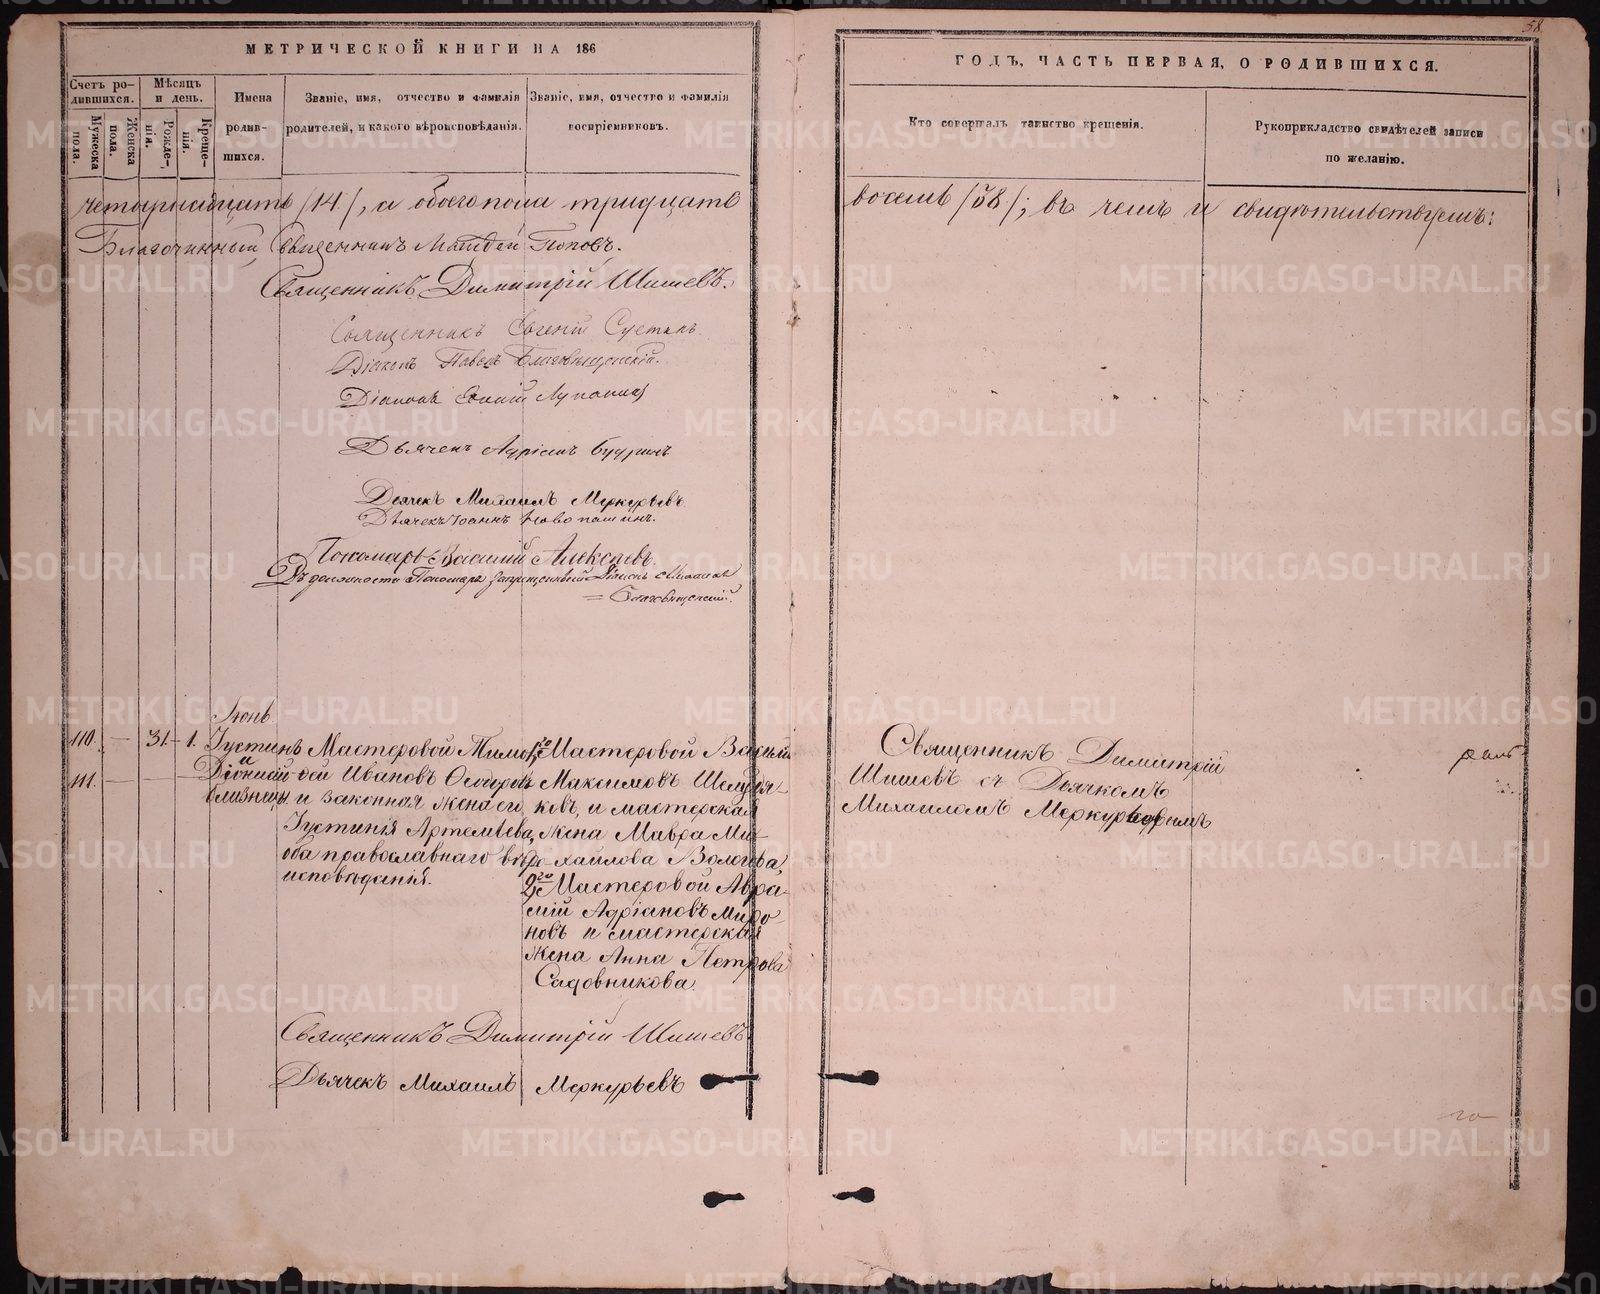 58
МЕТРИЧЕСКОЙ КНИГИ НА 186
ГОДЪ, ЧАСТЬ ПЕРВАЯ, О РОДИВШИХСЯ.
Счетъ ро-
дившихся.
Мужеска
пола.
Женска
пола.
Мѣсяцъ
и день.
Рожде-
нія.
Креще-
нія.
Имена
родив-
шихся.
Званіе, имя, отчество и фамилія
родителей, и какого вѣроисповѣданія.
Званіе, имя, отчество и фамилія
воспріемниковъ.
Кто совершалъ таинство крещенія.
Рукоприкладство свидѣтелей записи
по желанію.
четырнадцать /14/, а обоего пола тридцать
восемь /38/; въ чемъ и свидѣтельствуемъ:
Благочинный, Священникъ Матвей Поповъ.
Священникъ Димитрій Шишевъ.
Священникъ Евгеній
Діаконъ Павелъ Благовѣщенскій.
Діаконъ
Дьячекъ Адріанъ
Дьячекъ Михаилъ Меркурьевъ
Дьячекъ Іоаннъ Новопашинъ.
Пономарь Василій Алексѣевъ.
Въ должности Пономаря запрещенный Діаконъ
Благовѣщенскій.
Іюнь
110. — 31 – 1. Іустинъ
и
111. — Діонисій
близнецы
Мастеровой Тимо-
фей Ивановъ
и законная жена его
Іустинія Артемьева,
оба православнаго вѣро-
исповѣданія.
1го Мастеровой Василій
Максимовъ
ковъ, и мастерская
жена Мавра Ми-
хайлова Вологова,
2го Мастеровой Авра-
мій Адріановъ Миро-
новъ и мастерская
жена Анна Петрова
Садовникова.
Священникъ Димитрій
Шишовъ съ Дьячкомъ
Михаиломъ Меркурьевымъ
Священникъ Димитрій Шишевъ.
Дьячекъ Михаилъ Меркурьевъ
METRIKI.GASO-URAL.RU